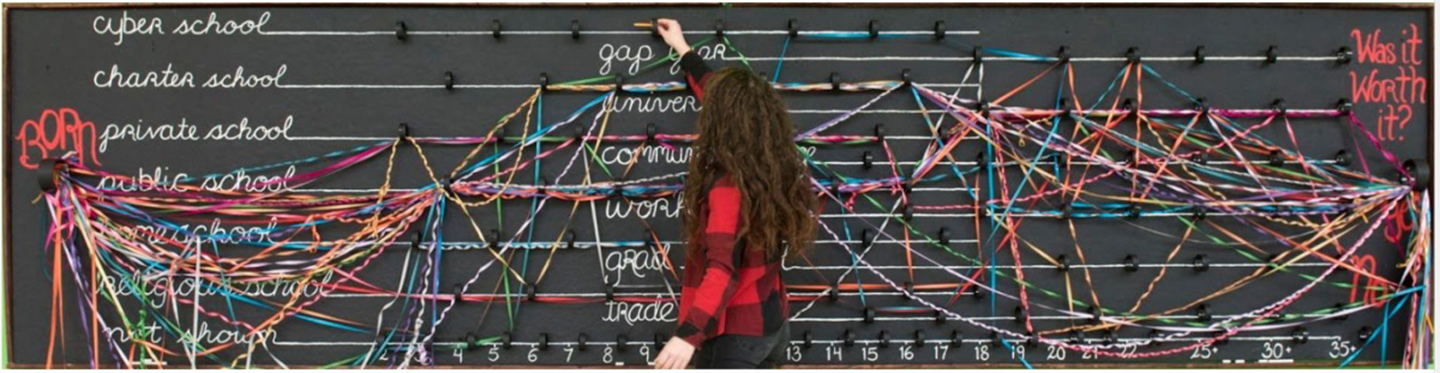 cyber school
gap
charter school
univer
BORN
private school
commun
public school
work
homeschool
grad
religious school
trade
not shown
2 3 4 5 6 7 8 9 13 14 15 16 17 18 19 20 21 22 25+ 30+ 35+
Was it
Worth
it?